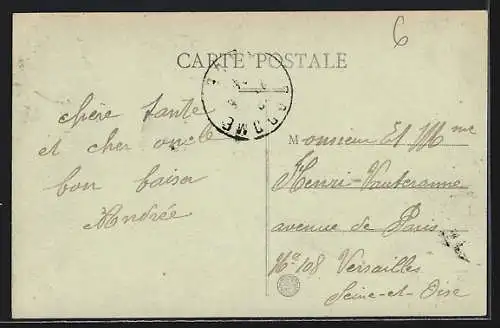 6
CARTE POSTALE
chère tante
et cher oncle
bon baiser
Andrée
Monsieur Et Mme
Henri
avenue de Paris
No 108 Versailles
Seine-et-Oise